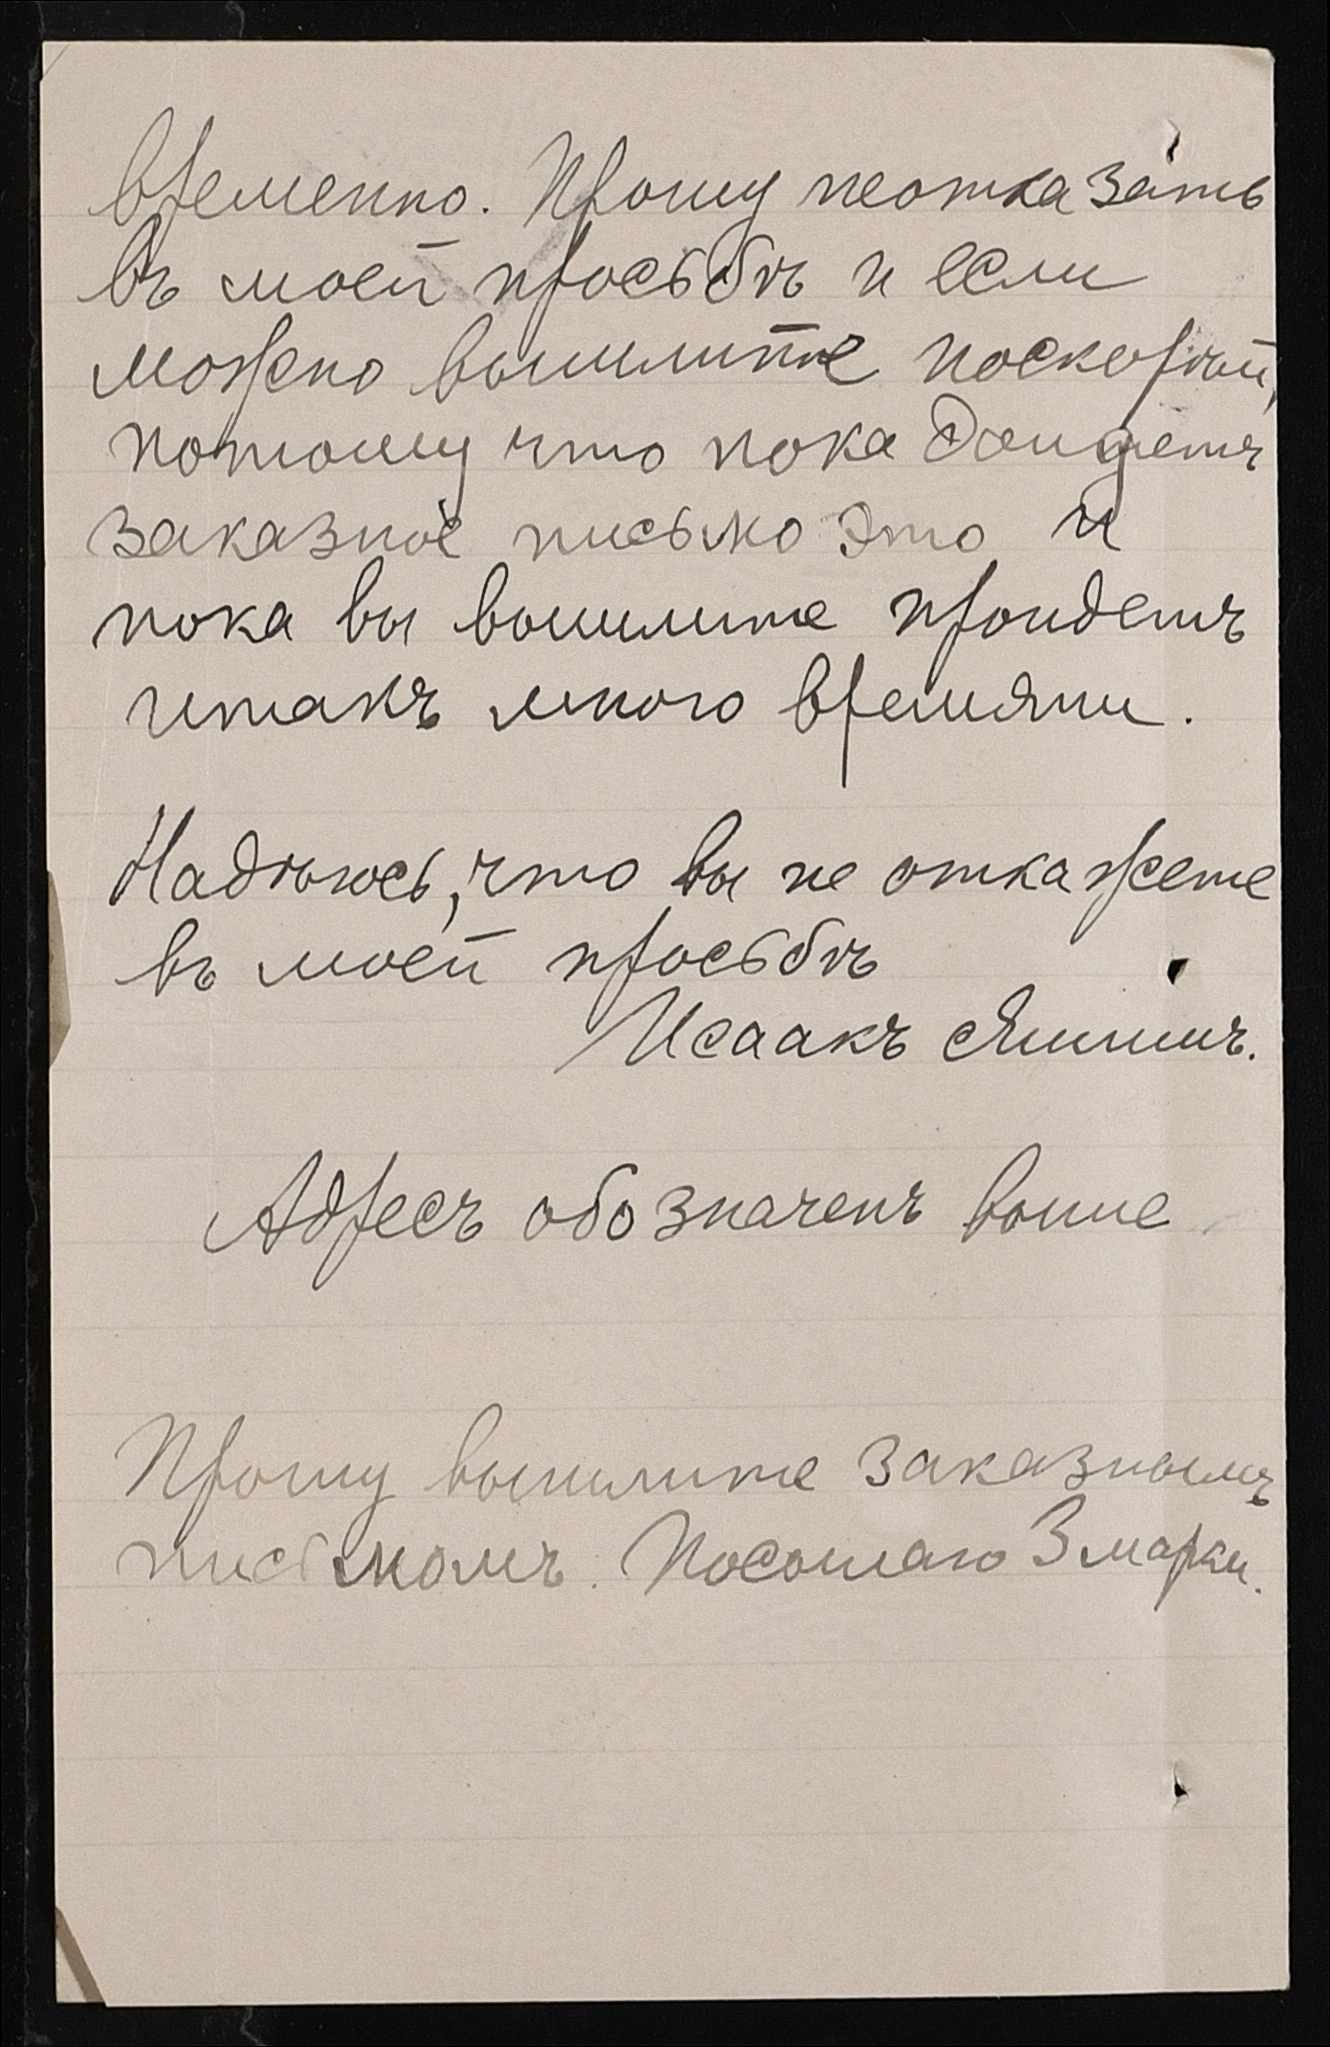 временно. Прошу неотказать
въ моей просьбѣ и если
можно вышлите поскорѣй,
потому что пока дойдетъ
заказное письмо это и
пока вы вышлите пройдетъ
итакъ много времяни.
Надѣюсь, что вы не откажете
въ моей просьбѣ
Исаакъ
Адресъ обозначенъ выше
Прошу вышлите заказнымъ
письмомъ. Посылаю 3 марки.